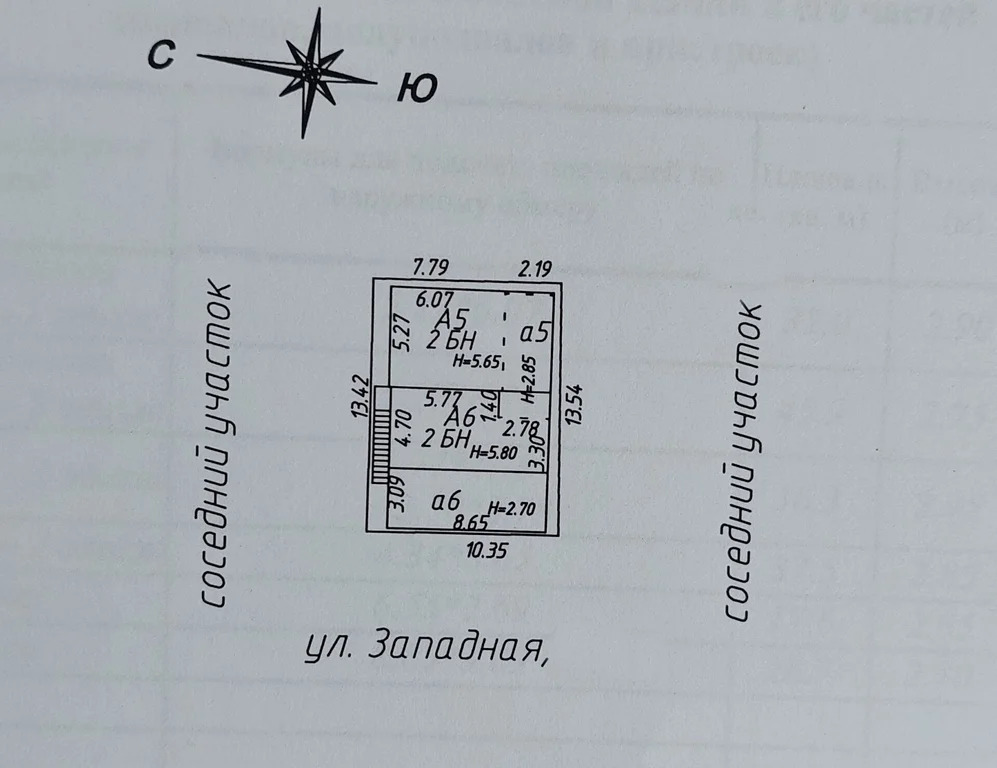 С
Ю
7.79 2.19
6.07
А5
2 БН
5.27
H=5.65
а5
H=2.85
13.42
13.54
5.77
1.40
А6
2 БН
4.70
2.78
H=5.80
3.30
3.09
а6
H=2.70
8.65
10.35
соседний участок
соседний участок
ул. Западная,